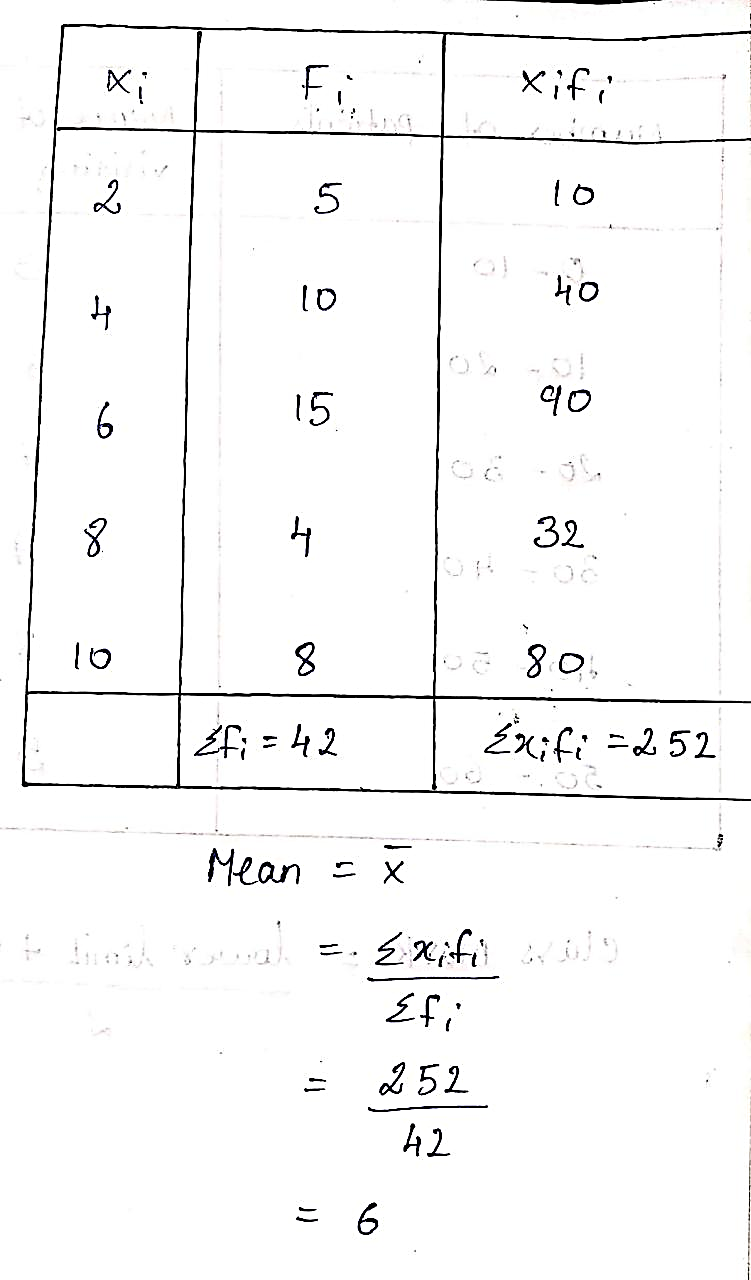 xi Fi xifi
2 5 10
4 10 40
6 15 90
8 4 32
10 8 80
Σfi = 42 Σxifi = 252
Mean = x̄
= Σxifi
Σfi
= 252
42
= 6